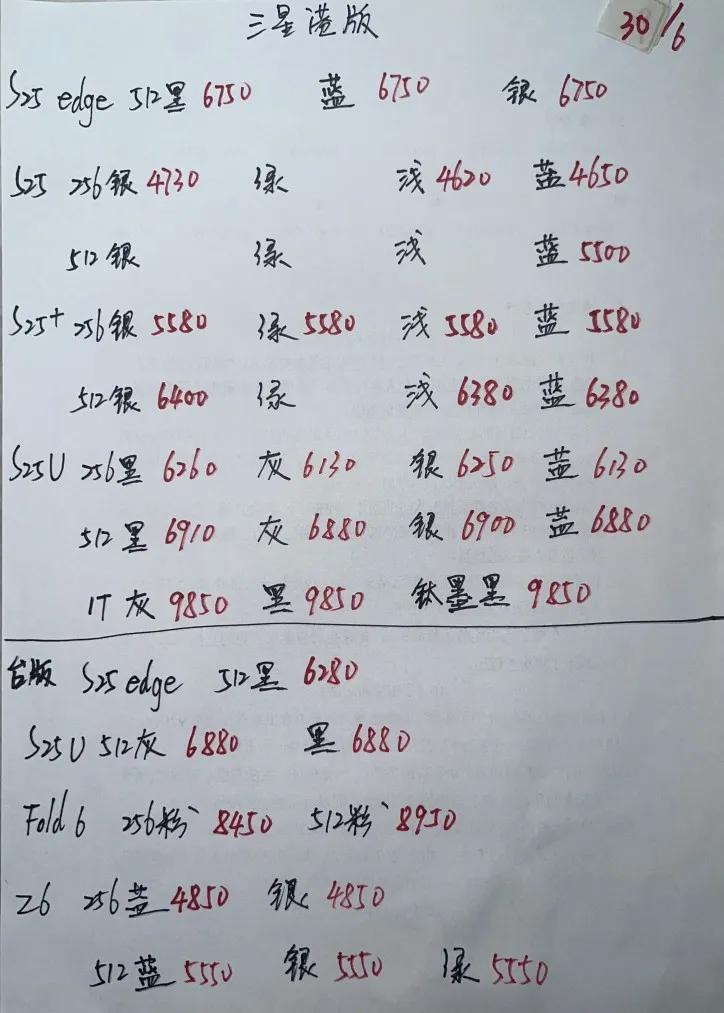 三星港版 30/6
S25 edge 512黑 6750 蓝 6750 银 6750
S25 256银 4730 绿 浅 4620 蓝 4650
512银 绿 浅 蓝 5500
S25+ 256银 5580 绿 5580 浅 5580 蓝 5580
512银 6400 绿 浅 6380 蓝 6380
S25U 256黑 6260 灰 6130 银 6250 蓝 6130
512黑 6910 灰 6880 银 6900 蓝 6880
1T 灰 9850 黑 9850 钛墨黑 9850
台版 S25 edge 512黑 6280
S25U 512灰 6880 黑 6880
Fold 6 256粉 8450 512粉 8950
Z6 256蓝 4850 银 4850
512蓝 5550 银 5550 绿 5550